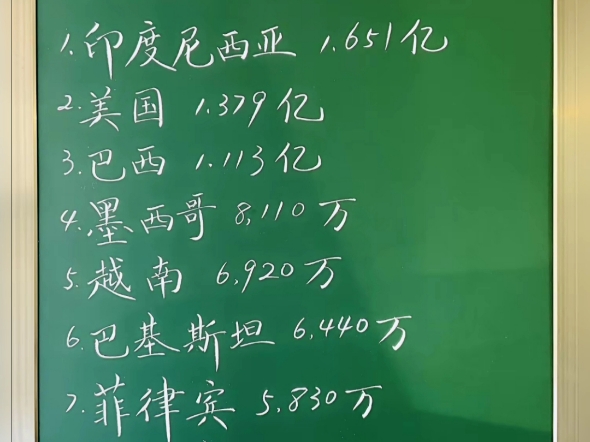 1.印度尼西亚 1.651亿
2.美国 1.379亿
3.巴西 1.113亿
4.墨西哥 8,110万
5.越南 6,920万
6.巴基斯坦 6,440万
7.菲律宾 5,830万